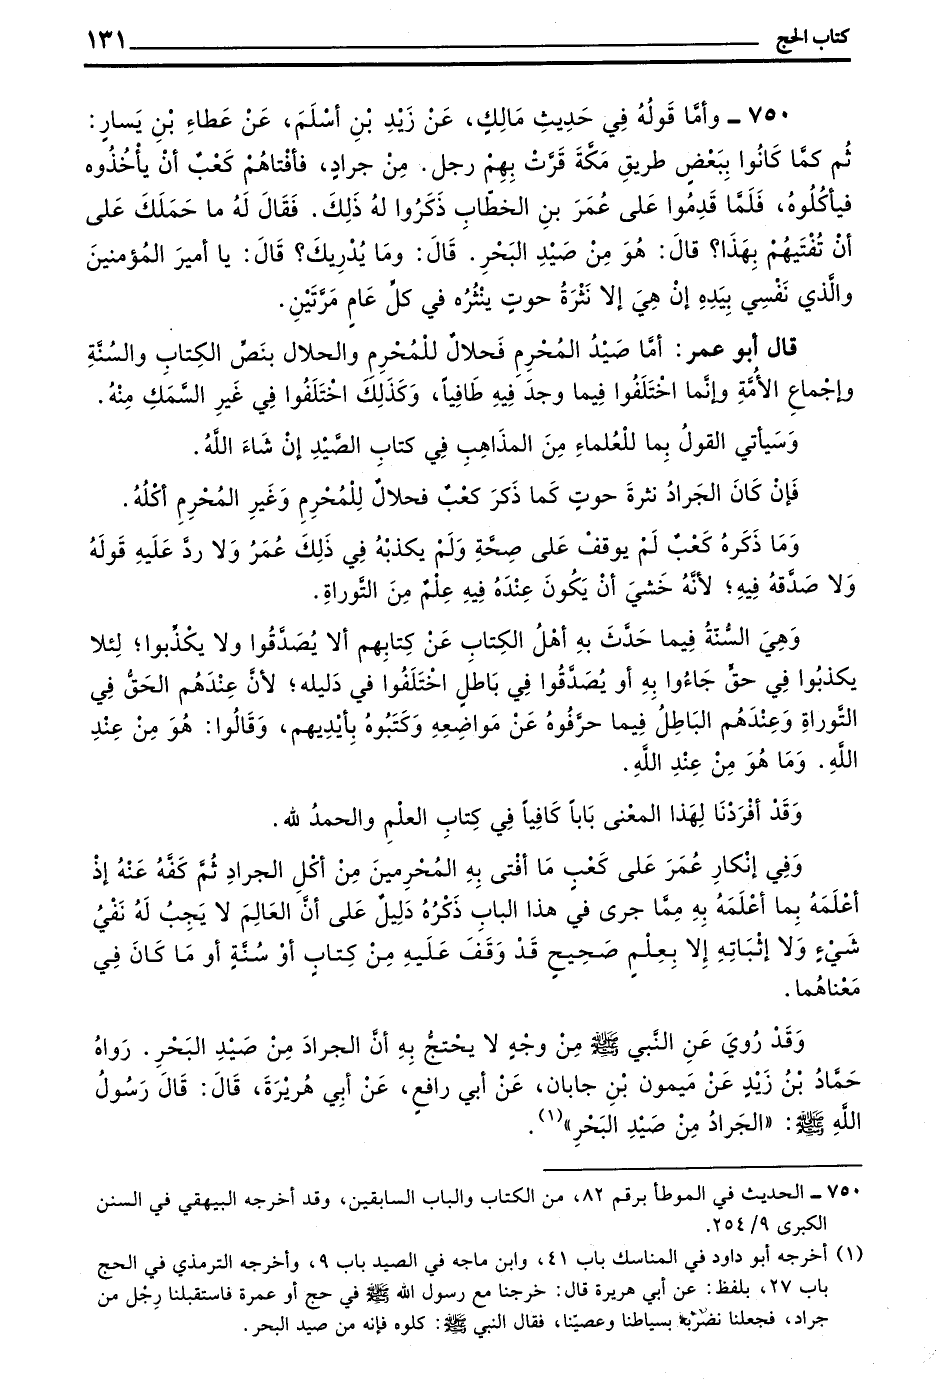 كتاب الحج ١٣١
٧٥٠ ـ وأمَّا قَولُهُ فِي حَدِيثِ مَالِكٍ، عَنْ زَيْدِ بْنِ أسْلَمَ، عَنْ عَطاءِ بْنِ يَسارٍ:
ثُم كمَّا كَانُوا بِبَعْضِ طريقِ مَكَّةَ فَرَّتْ بِهِمْ رجل. مِنْ جرادٍ، فأفْتاهُمْ كَعْبٌ أنْ يأْخُذُوه
فيأكُلُوهُ، فَلَمَّا قَدِمُوا عَلى عُمَرَ بنِ الخطّابِ ذَكَرُوا لهُ ذَلِكَ. فَقَالَ لَهُ ما حَمَلَكَ عَلى
أنْ تُفْتَيهُمْ بِهَذَا؟ قالَ: هُوَ مِنْ صَيْدِ البَحْرِ. قَالَ: ومَا يُدْرِيكَ؟ قَالَ: يا أميرَ المُؤمنينَ
والَّذي نَفْسِي بِيَدِهِ إنْ هِيَ إلا نَثْرَةُ حوتٍ ينْثُرُه في كلِّ عَامٍ مَرَّتَيْنِ.
قال أبو عمر: أمَّا صَيْدُ المُحْرِمِ فَحلالٌ للْمُحْرِمِ والحلال بنَصِّ الكِتابِ والسُنَّةِ
وإجْماعِ الأُمَّةِ وإنَّما اخْتَلَفُوا فِيما وجدَ فِيهِ طَافِياً، وَكَذَلِكَ اخْتَلَفُوا فِي غَيرِ السَّمَكِ مِنْهُ.
وَسَيأتي القولُ بِما للْعُلماءِ مِنَ المذاهِبِ فِي كتابِ الصَّيْدِ إنْ شَاءَ اللَّهُ.
فَإنْ كَانَ الجَرادُ نثرةَ حوتٍ كَما ذَكرَ كعْبٌ فحلالٌ لِلْمُحْرِمِ وَغَيرِ المُحْرِمِ أكْلُهُ.
وَمَا ذَكَرهُ كَعْبٌ لَمْ يوقفْ عَلى صِحَّةٍ وَلَمْ يكذبْهُ فِي ذَلِكَ عُمَرُ وَلا ردَّ عَلَيهِ قَولَهُ
وَلا صَدَّقهُ فِيهِ؛ لأنَّهُ خَشيَ أنْ يَكُونَ عِنْدَهُ فِيهِ عِلْمٌ مِنَ التَّوراةِ.
وَهِيَ السُّنّةُ فِيما حَدَّثَ بهِ أهْلُ الكِتابِ عَنْ كِتابِهم ألا يُصَدَّقُوا ولا يكْذِّبوا؛ لِئلا
يكذبُوا فِي حقٍّ جَاءُوا بِهِ أو يُصَدَّقُوا فِي بَاطلٍ اخْتَلَفُوا في دَليله؛ لأنَّ عِنْدَهُم الحَقُّ فِي
التَّوراةِ وَعِنْدَهُم البَاطِلُ فِيما حرَّفُوهُ عَنْ مَواضِعِهِ وَكَتَبُوهُ بأيْدِيهم، وَقَالُوا: هُوَ مِنْ عِنْدِ
اللَّهِ. وَمَا هُوَ مِنْ عِنْدِ اللَّهِ.
وَقَدْ أفْرَدْنَا لِهَذا المعْنى بَاباً كَافِياً فِي كِتابِ العلْمِ والحمدُ لله.
وَفِي إنْكارِ عُمَرَ عَلى كَعْبٍ مَا أفْتى بِهِ المُحْرِمينَ مِنْ أكْلِ الجرادِ ثُمَّ كَفَّهُ عَنْهُ إذْ
أعْلَمَهُ بِما أعْلَمَهُ بِهِ مِمَّا جرى في هذا البابِ ذكْرُهُ دَلِيلٌ عَلى أنَّ العَالِمَ لا يَجِبُ لَهُ نَفْيُ
شَيْءٍ وَلا إثْبَاتِهِ إلا بِعِلْمٍ صَحِيحٍ قَدْ وَقَفَ عَلَيهِ مِنْ كِتابٍ أوْ سُنَّةٍ أو مَا كَانَ فِي
مَعْناهُما.
وَقَدْ رُويَ عَنِ النَّبي ﷺ مِنْ وجْهٍ لا يحْتجُّ بِهِ أنَّ الجرادَ مِنْ صَيْدِ البَحْرِ. رَواهُ
حَمَّادُ بْنُ زَيْدٍ عَنْ مَيمون بْنِ جابان، عَنْ أبي رافعٍ، عَنْ أبِي هُريْرَةَ، قَالَ: قَالَ رَسُولُ
اللَّهِ ﷺ: «الجَرادُ مِنْ صَيْدِ البَحْرِ»(١).
٧٥٠ ـ الحديث في الموطأ برقم ٨٢، من الكتاب والباب السابقين، وقد أخرجه البيهقي في السنن
الكبرى ٩/ ٢٥٤.
(١) أخرجه أبو داود في المناسك باب ٤١، وابن ماجه في الصيد باب ٩، وأخرجه الترمذي في الحج
باب ٢٧، بلفظ: عن أبي هريرة قال: خرجنا مع رسول الله ﷺ في حج أو عمرة فاستقبلنا رِجْل من
جراد، فجعلنا نضربه بسياطنا وعصيّنا، فقال النبي ﷺ: كلوه فإنه من صيد البحر.